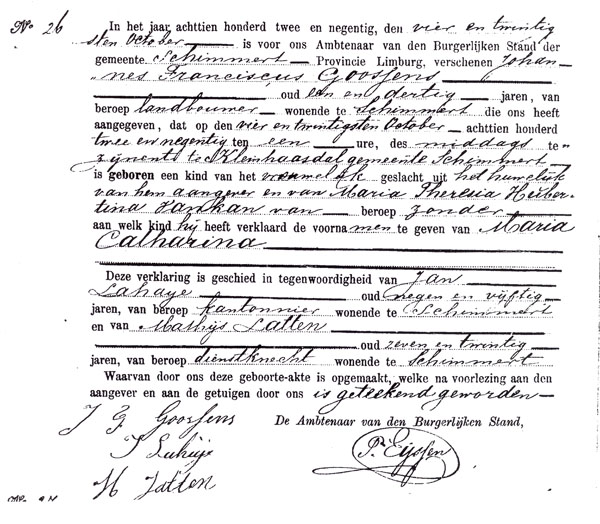 No 26
In het jaar achttien honderd twee en negentig, den vier en twintig
sten October is voor ons Ambtenaar van den Burgerlijken Stand der
gemeente Schimmert Provincie Limburg, verschenen Johan-
nes Franciscus Goossens
oud een en dertig jaren, van
beroep landbouwer wonende te Schimmert die ons heeft
aangegeven, dat op den vier en twintigsten October achttien honderd
twee en negentig ten een ure, des middags te
zijnent te Kleinhaasdal gemeente Schimmert
is geboren een kind van het vrouwelijk geslacht uit het huwelijk
van hem aangever en van Maria Theresia Huber-
tina van beroep zonder
aan welk kind hij heeft verklaard de voornamen te geven van Maria
Catharina
Deze verklaring is geschied in tegenwoordigheid van Jan
Lahaye oud negen en vijftig
jaren, van beroep kantonnier wonende te Schimmert
en van Mathijs Latten
oud zeven en twintig
jaren, van beroep dienstknecht wonende te Schimmert
Waarvan door ons deze geboorte-akte is opgemaakt, welke na voorlezing aan den
aangever en aan de getuigen door ons is geteekend geworden
J F Goossens De Ambtenaar van den Burgerlijken Stand,
J Lahaije P. Eijssen
M Latten